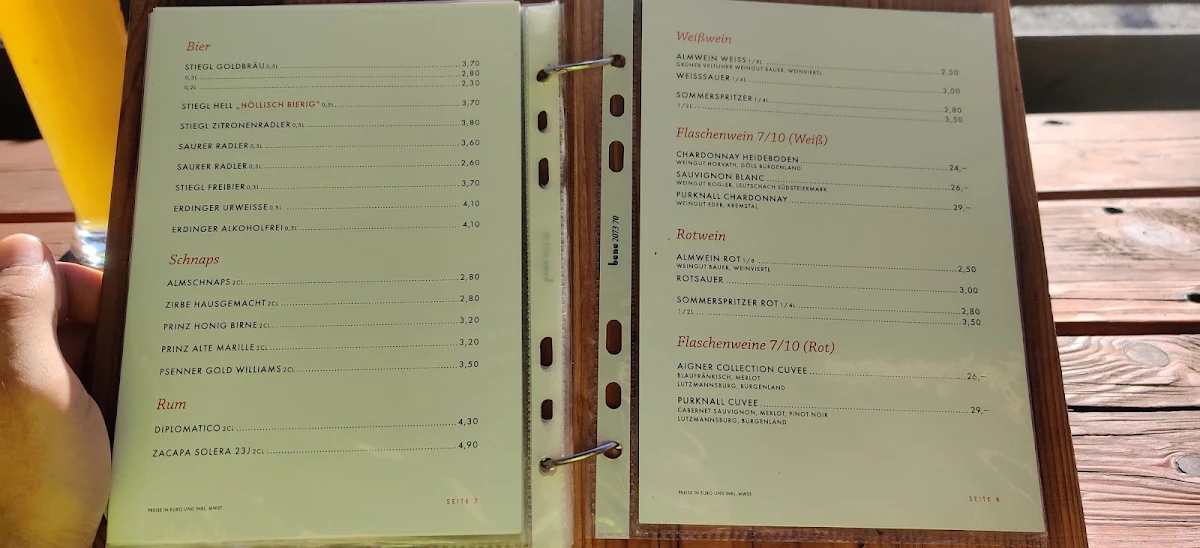 Bier
STIEGL GOLDBRÄU 0,5L 3,70
0,3L 2,80
0,2L 2,30
STIEGL HELL „HÖLLISCH BIERIG" 0,5L 3,70
STIEGL ZITRONENRADLER 0,5L 3,80
SAURER RADLER 0,5L 3,60
SAURER RADLER 0,3L 2,60
STIEGL FREIBIER 0,5L 3,70
ERDINGER URWEISSE 0,5L 4,10
ERDINGER ALKOHOLFREI 0,5L 4,10
Schnaps
ALMSCHNAPS 2CL 2,80
ZIRBE HAUSGEMACHT 2CL 2,80
PRINZ HONIG BIRNE 2CL 3,20
PRINZ ALTE MARILLE 2CL 3,20
PSENNER GOLD WILLIAMS 2CL 3,50
Rum
DIPLOMATICO 2CL 4,30
ZACAPA SOLERA 23J 2CL 4,90
PREISE IN EURO UND INKL. MWST.
SEITE 7
bene 2073 70
Weißwein
ALMWEIN WEISS 1/8L 2,50
GRÜNER VELTLINER WEINGUT BAUER, WEINVIERTL
WEISSSAUER 1/4L 3,00
SOMMERSPRITZER 1/4L 2,80
1/2L 3,50
Flaschenwein 7/10 (Weiß)
CHARDONNAY HEIDEBODEN 24,–
WEINGUT HORVATH, GOLS BURGENLAND
SAUVIGNON BLANC 26,–
WEINGUT KOGLER, LEUTSCHACH SÜDSTEIERMARK
PURKNALL CHARDONNAY 29,–
WEINGUT EDER, KREMSTAL
Rotwein
ALMWEIN ROT 1/8 2,50
WEINGUT BAUER, WEINVIERTL
ROTSAUER 3,00
SOMMERSPRITZER ROT 1/4L 2,80
1/2L 3,50
Flaschenweine 7/10 (Rot)
AIGNER COLLECTION CUVEE 26,–
BLAUFRÄNKISCH, MERLOT
LUTZMANNSBURG, BURGENLAND
PURKNALL CUVEE 29,–
CABERNET SAUVIGNON, MERLOT, PINOT NOIR
LUTZMANNSBURG, BURGENLAND
PREISE IN EURO UND INKL. MWST.
SEITE 8